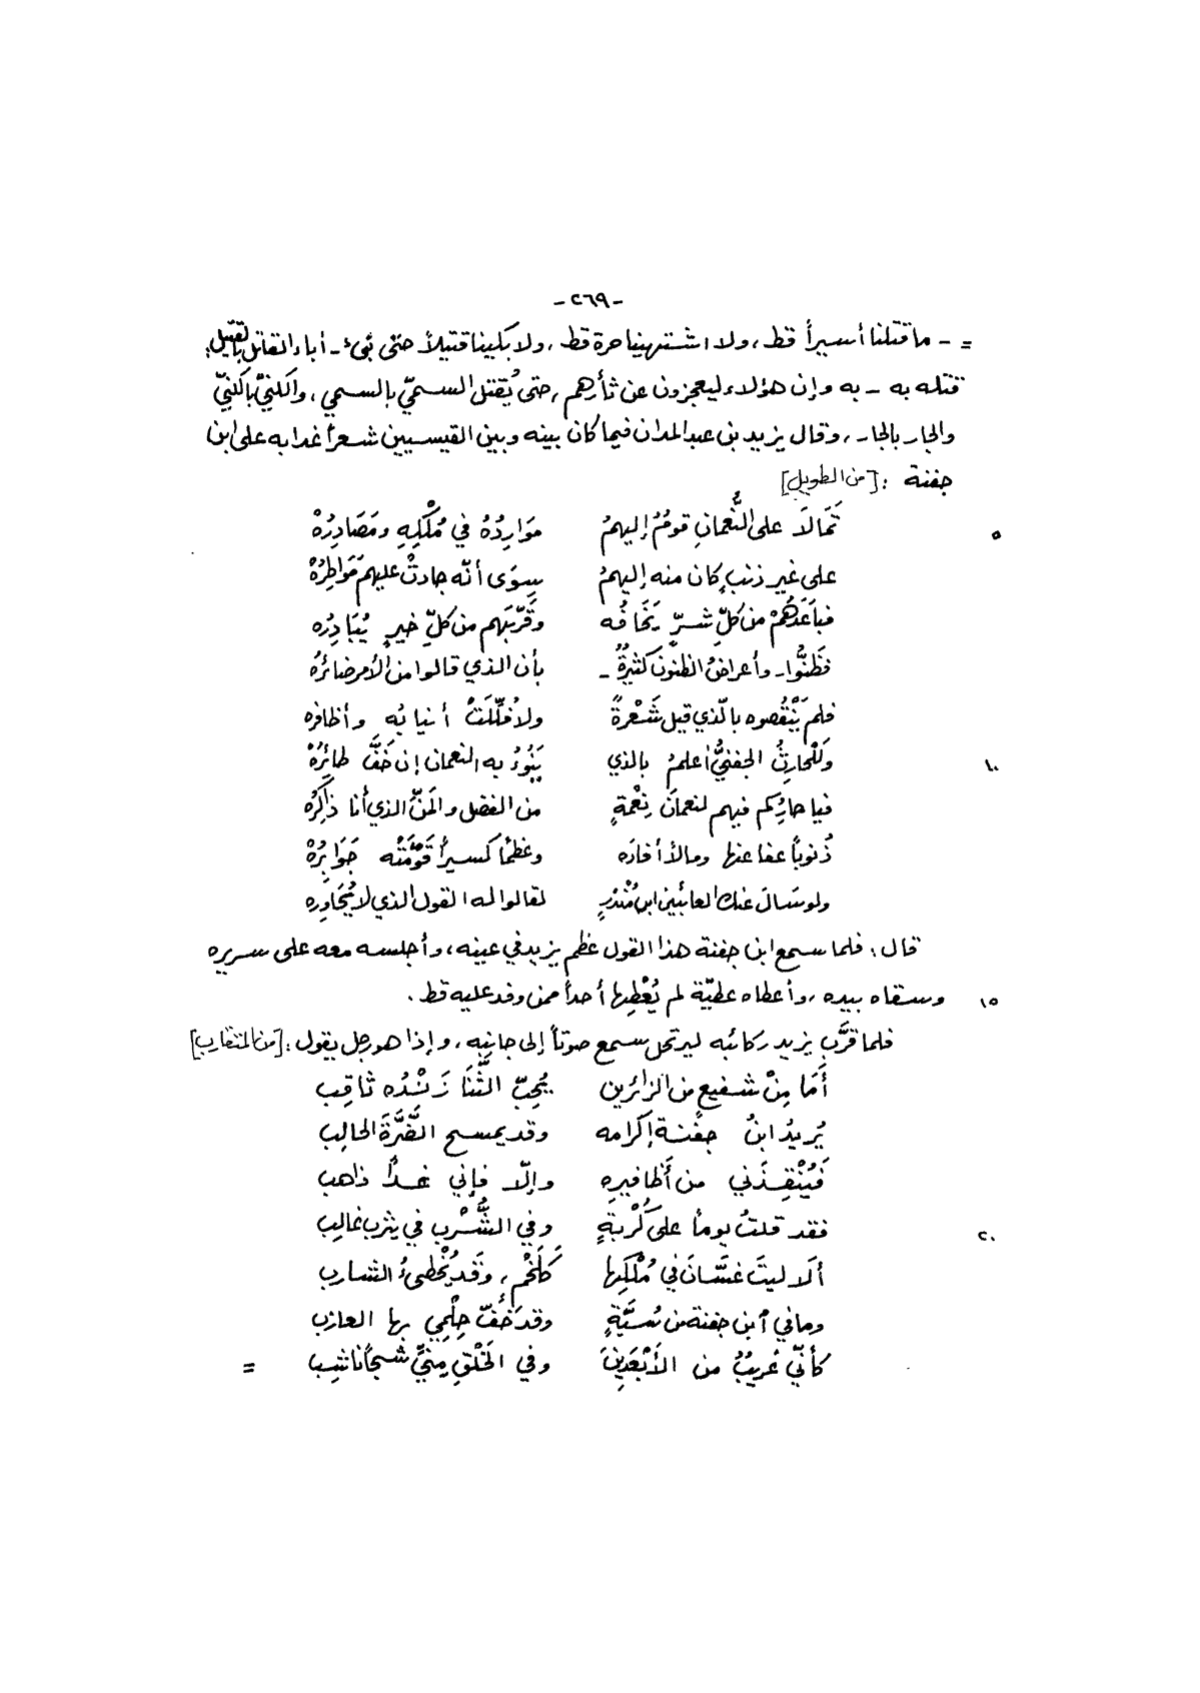 -٢٦٩-
= - ما قتلنا أسيراً قط، ولا اشتهينا حرة قط، ولا بكينا قتيلاً حتى نبىء - أباء القاتل بالقتيل:
قتله به - به وإن هؤلاء ليعجزون عن ثأرهم، حتى يُقتل السميّ بالسمي، والكنيّ بالكنيّ
والجار بالجار، وقال يزيد بن عبد المدان فيما كان بينه وبين القيسيين شعراً غدا به على ابن
جفنة : [من الطويل]
تَمَالَا على النُّعمانِ قومٌ إليهمُ مَوَارِدُهُ في مُلْكِهِ ومَصَادِرُهْ ٥
على غير ذنبٍ كان منه إليهمُ سِوَى أنّه جادتْ عليهم مَوَاطِرُهْ
فباعَدَهُمْ من كلِّ شرٍّ يَخَافُه وقَرّبَهم من كلّ خيرٍ يُبَادِرُه
فظَنُّوا - وأعراضُ الظنونَ كثيرةٌ - بأن الذي قالوا من الأمر ضائرُهُ
فلم يَنْقُصوه بالّذي قيل شَعْرةً ولا فُلِّلَتْ أنيابُهِ وأظافره
ولَلْحارِثُ الجفنيُّ أعلمُ بالذي يَنُوءُ به النعمان إن خَفَّ طائِرُهْ ١٠
فيا حارِ كم فيهم لنعمانَ نِعْمةٍ من الفضل والمَنِّ الذي أنا ذَاكِرُهُ
ذُنوباً عفا عنها ومالاً أفادَه وعَظْماً كسيراً قَوَّمَتْه جَوَابِرُهْ
ولو سَالَ عنك العائبين ابنُ مُنْذرٍ لقالوا له القول الذي لا يُحَاوِره
قال: فلما سمع ابن جفنة هذا القول عَظُم يزيد في عينه، وأجلسه معه على سريره
وسقاه بيده، وأعطاه عطيّة لم يُعْطِها أحداً ممن وفد عليه قط. ١٥
فلما قرَّب يزيد ركائبه ليرتحل سمع صوتاً إلى جانِبِه، وإذا هو رجل يقول: [من المتقارب]
أَمَا مِنْ شفيعٍ من الزائرين يُحِبّ الثَّنَا زَنْدُه ثاقِب
يُريدُ ابنُ جفنة إكرامه وقد يمسح الضَّرَّةَ الحالِب
فيُنْقِذَني من أظافيرِه وإلّا فإني غداً ذاهب
فقد قلتُ يوماً على كُرْبةٍ وفي الشُّرْبِ في يثرب غالِب ٢٠
ألَا ليتَ غسّانَ في مُلْكِها كلَخْمٍ، وقَد يُخْطئُ الشارب
وما في ٱبن جفنة من سُبَّةٍ وقد خَفّ حِلْمِي بها العازب
كأنّي غريبٌ من الأَبْعَدِينَ وفي الحَلْقِ مِنّيَ شجاً ناشِب =